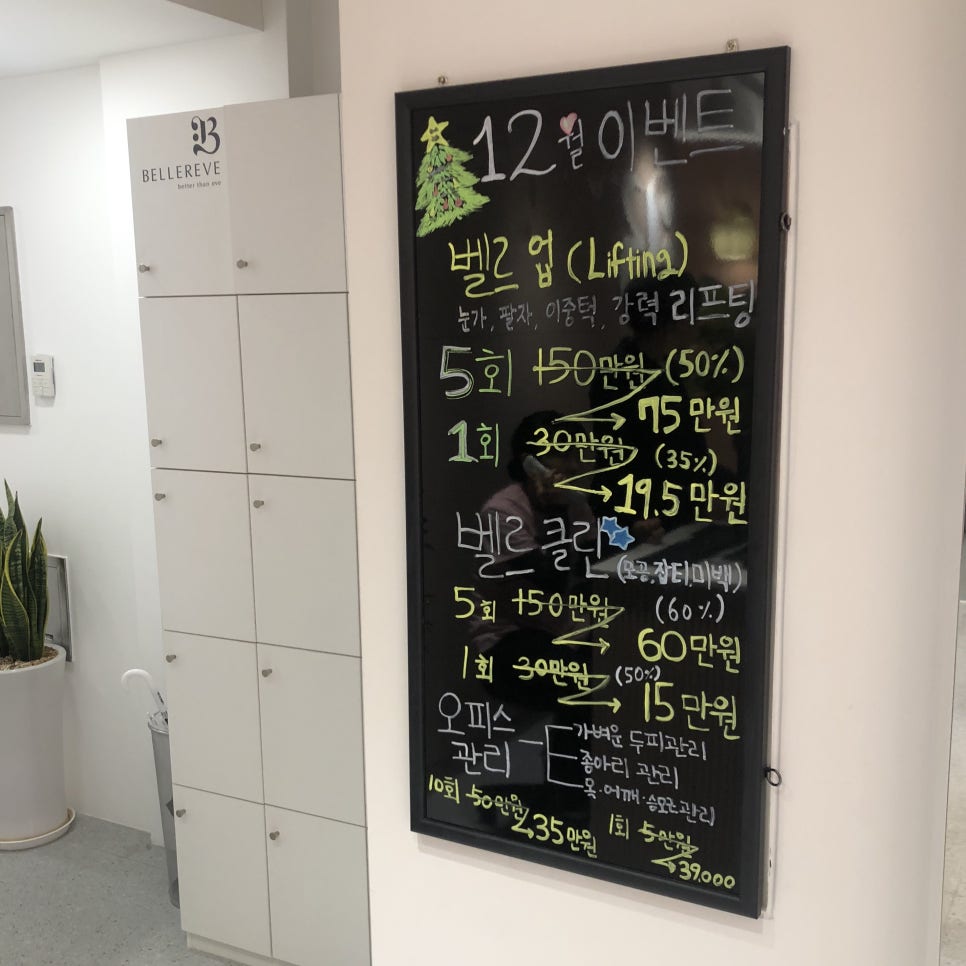 B
BELLEREVE
better than eve
12월 이벤트
벨르 업 (Lifting)
눈가, 팔자, 이중턱, 강력 리프팅
5회 150만원 (50%)
→ 75만원
1회 30만원 (35%)
→ 19.5만원
벨르 클린 (모공,잡티미백)
5회 150만원 (60%)
→ 60만원
1회 30만원 (50%)
→ 15만원
오피스 관리
가벼운 두피관리
종아리 관리
목·어깨·승모근관리
10회 50만원 → 35만원
1회 5만원 → 39.000